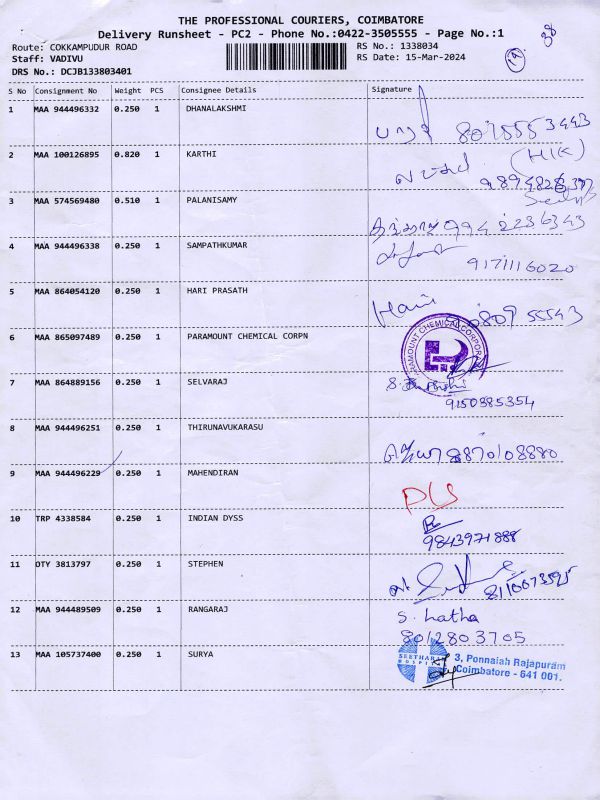 THE PROFESSIONAL COURIERS, COIMBATORE
Delivery Runsheet - PC2 - Phone No.:0422-3505555 - Page No.:1
Route: COKKAMPUDUR ROAD
Staff: VADIVU
DRS No.: DCJB133803401
RS No.: 1338034
RS Date: 15-Mar-2024
19
38
S No Consignment No Weight PCS Consignee Details Signature
1 MAA 944496332 0.250 1 DHANALAKSHMI
2 MAA 100126895 0.820 1 KARTHI (HIK)
3 MAA 574569480 0.510 1 PALANISAMY
4 MAA 944496338 0.250 1 SAMPATHKUMAR 9171116020
5 MAA 864054120 0.250 1 HARI PRASATH Hari
6 MAA 865097489 0.250 1 PARAMOUNT CHEMICAL CORPN PARAMOUNT CHEMICAL CORPORATION
7 MAA 864889156 0.250 1 SELVARAJ 9150385354
8 MAA 944496251 0.250 1 THIRUNAVUKARASU 8870108880
9 MAA 944496229 0.250 1 MAHENDIRAN
10 TRP 4338584 0.250 1 INDIAN DYSS 9843971888
11 OTY 3813797 0.250 1 STEPHEN
12 MAA 944489509 0.250 1 RANGARAJ S. Latha
8012803705
13 MAA 105737400 0.250 1 SURYA SEETHARAM HOSPITAL 3, Ponnaiah Rajapuram
Coimbatore - 641 001.